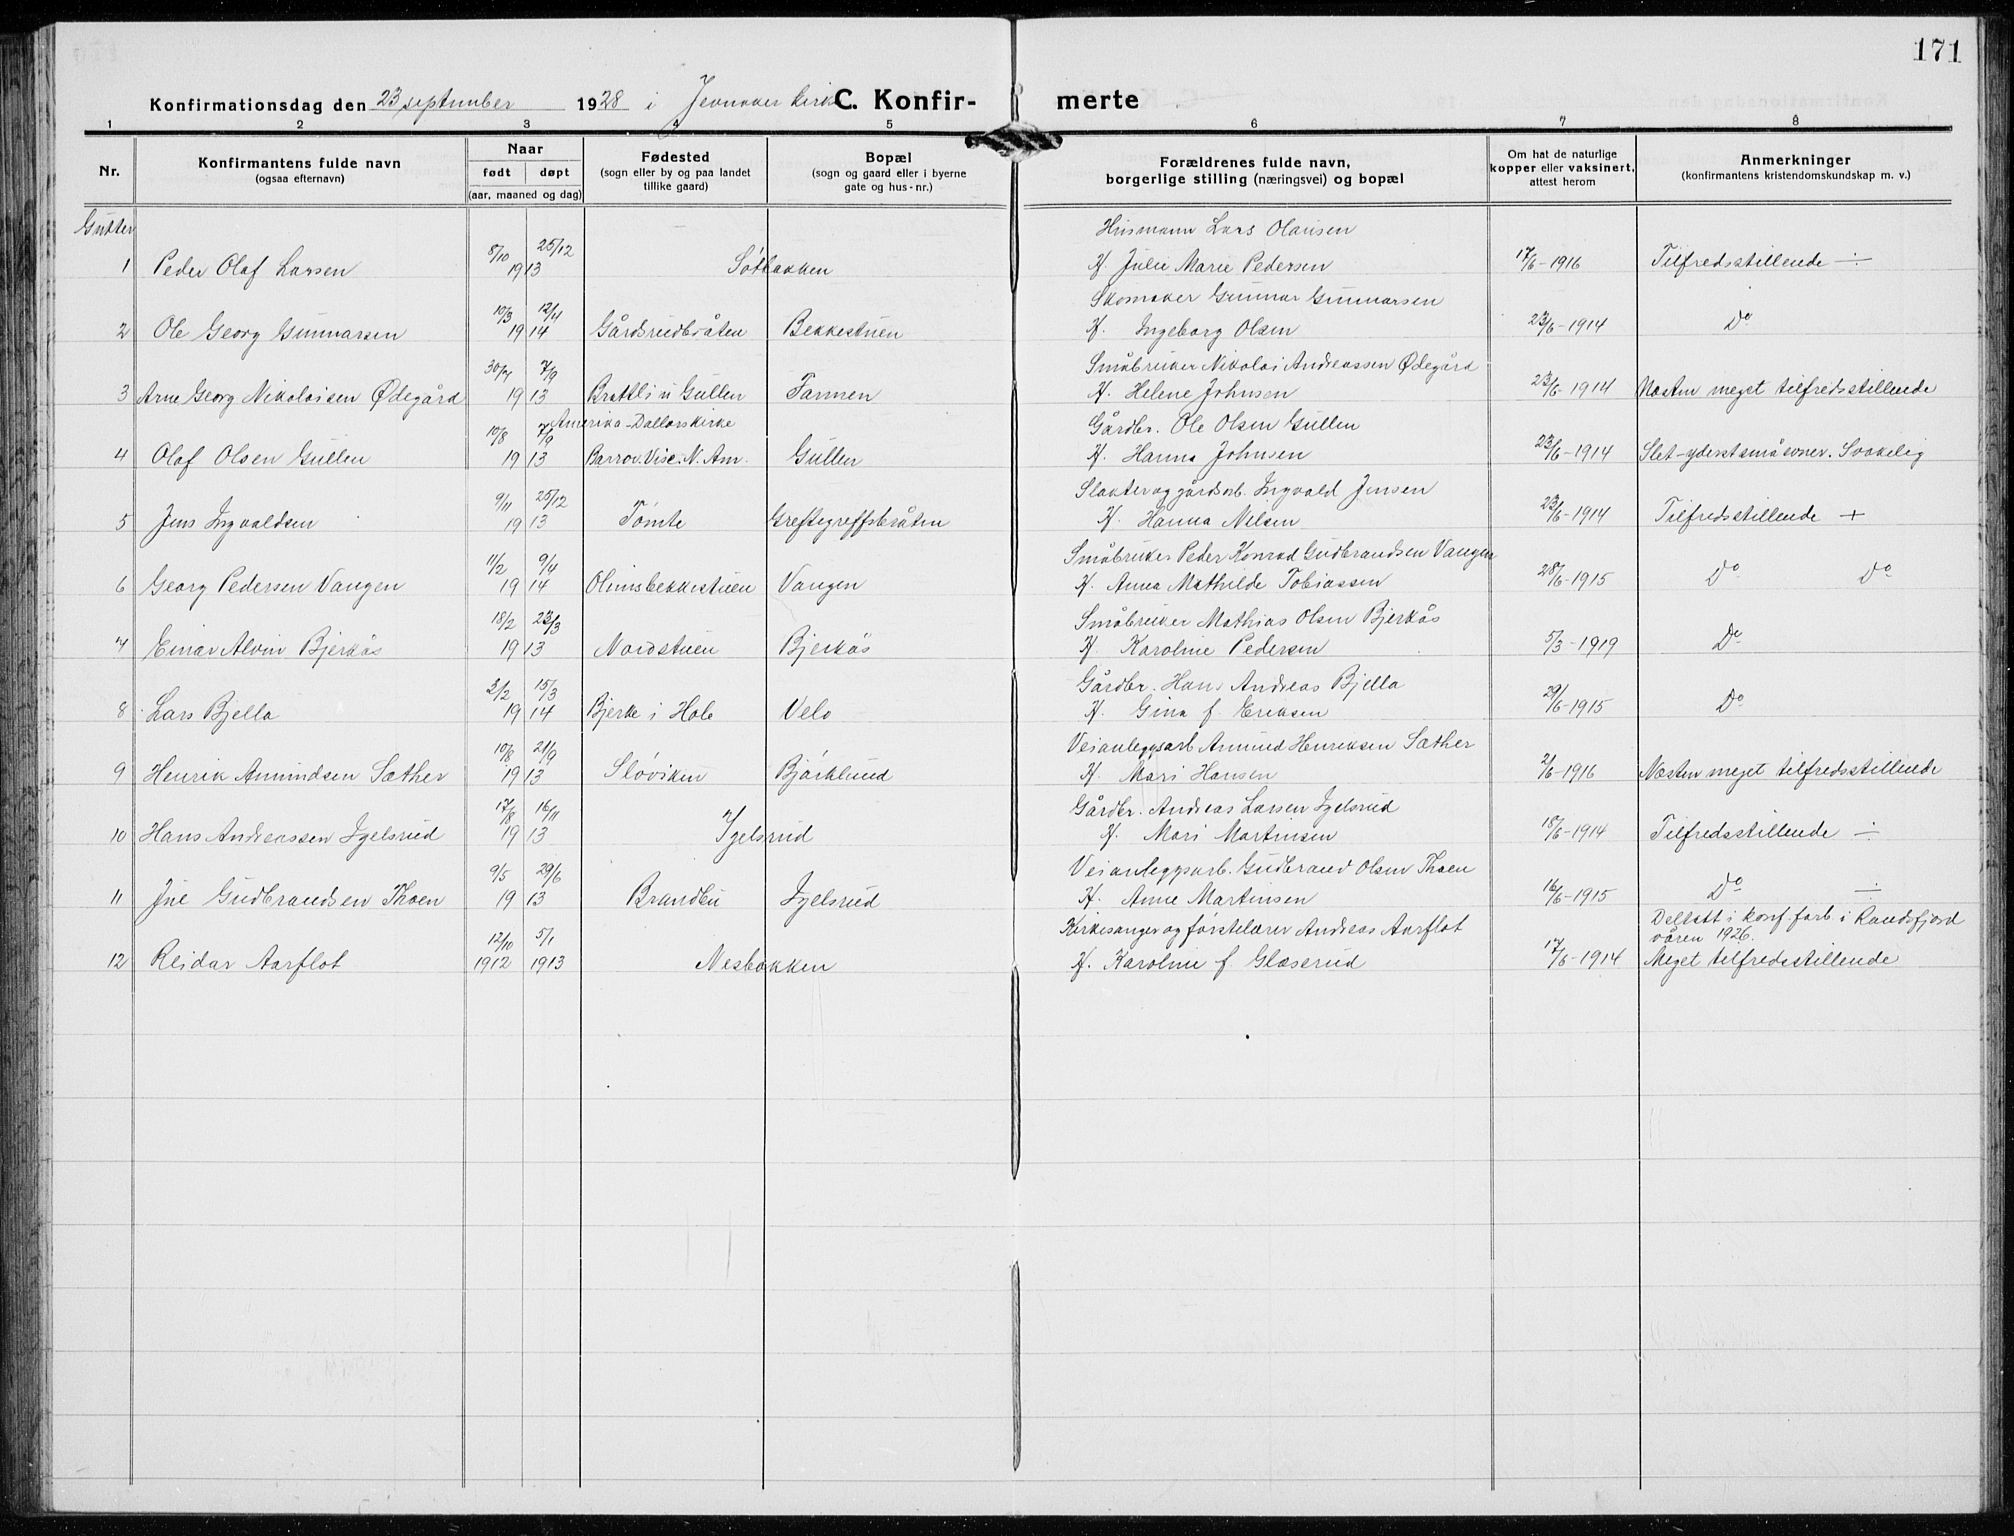 171
Konfirmationsdag den 23 september 1928 i Jevnaker kirke C. Konfir- merte
1 2 3 4 5 6 7 8
Nr. Konfirmantens fulde navn (ogsaa efternavn) Naar født døpt (aar, maaned og dag) Fødested (sogn eller by og paa landet tillike gaard) Bopæl (sogn og gaard eller i byerne gate og hus-nr.) Forældrenes fulde navn, borgerlige stilling (næringsvei) og bopæl Om hat de naturlige kopper eller vaksinert, attest herom Anmerkninger (konfirmantens kristendomskundskap m. v.)
Gutter
8/10 25/12 Husmann Lars Olausen
1 Peder Olaf Larsen 19 13 Søtbakken H. Julie Marie Pedersen 17/6-1916 Tilfredsstillende ÷
10/3 12/4 Skomaker Gunnar Gunnarsen
2 Ole Georg Gunnarsen 19 14 Gårdsrudbråten Bekkestuen H. Ingeborg Olsen 23/6-1914 Do
30/7 7/9 Småbruker Nikolai Andreassen Ødegård
3 Arne Georg Nikolaisen Ødegård 19 13 Brattli u Gullen Farmen H. Helene Johnsen 23/6-1914 Næsten meget tilfredsstillende
10/8 7/9 Amerika-Dallorskirke Gårdbr. Ole Olsen Gullen
4 Olaf Olsen Gullen 19 13 Barrov. Visc. N. Am. Gullen H. Hanna Johnsen 23/6-1914 Slet-yderstsmåevner. Svakelig
9/11 25/12 Slakter og gårdarb. Ingvald Jensen
5 Jens Ingvaldsen 19 13 Tømte Greftegreffsbråten H. Hanna Nilsen 23/6-1914 Tilfredsstillende +
11/2 9/4 Småbruker Peder Konrad Gudbrandsen Vangen
6 Georg Pedersen Vangen 19 14 Olimsbekkestuen Vangen H. Anna Mathilde Tobiassen 28/6-1915 Do Do
18/2 23/3 Småbruker Mathias Olsen Bjerkås
7 Einar Alvin Bjerkås 19 13 Nordstuen Bjerkås H. Karoline Pedersen 5/3-1919 Do
2/2 15/3 Gårdbr. Hans Andreas Bjella
8 Lars Bjella 19 14 Bjerke i Hole Velo H. Gina f. Eriksen 29/6-1915 Do
10/8 21/9 Veianleggsarb Amund Henriksen Sæther
9 Henrik Amundsen Sæther 19 13 Sløviken Bjørklund H. Mari Hansen 2/6-1916 Næsten meget tilfredsstillende
17/8 16/11 Gårdbr. Andreas Larsen Igelsrud
10 Hans Andreassen Igelsrud 19 13 Igelsrud H. Mari Martinsen 18/6-1914 Tilfredsstillende ÷
9/5 29/6 Veianleggsarb. Gudbrand Olsen Thoen
11 Jne Gudbrandsen Thoen 19 13 Brandbu Igelsrud H. Anne Martinsen 16/6-1915 Do ÷
12/10 5/1 Kirkesanger og førstelærer Andreas Aarflot Deltatt i konf. forb. i Randsfjord våren 1926.
12 Reidar Aarflot 1912 1913 Nesbakken H. Karoline f. Glæserud 17/6-1914 Meget tilfredsstillende